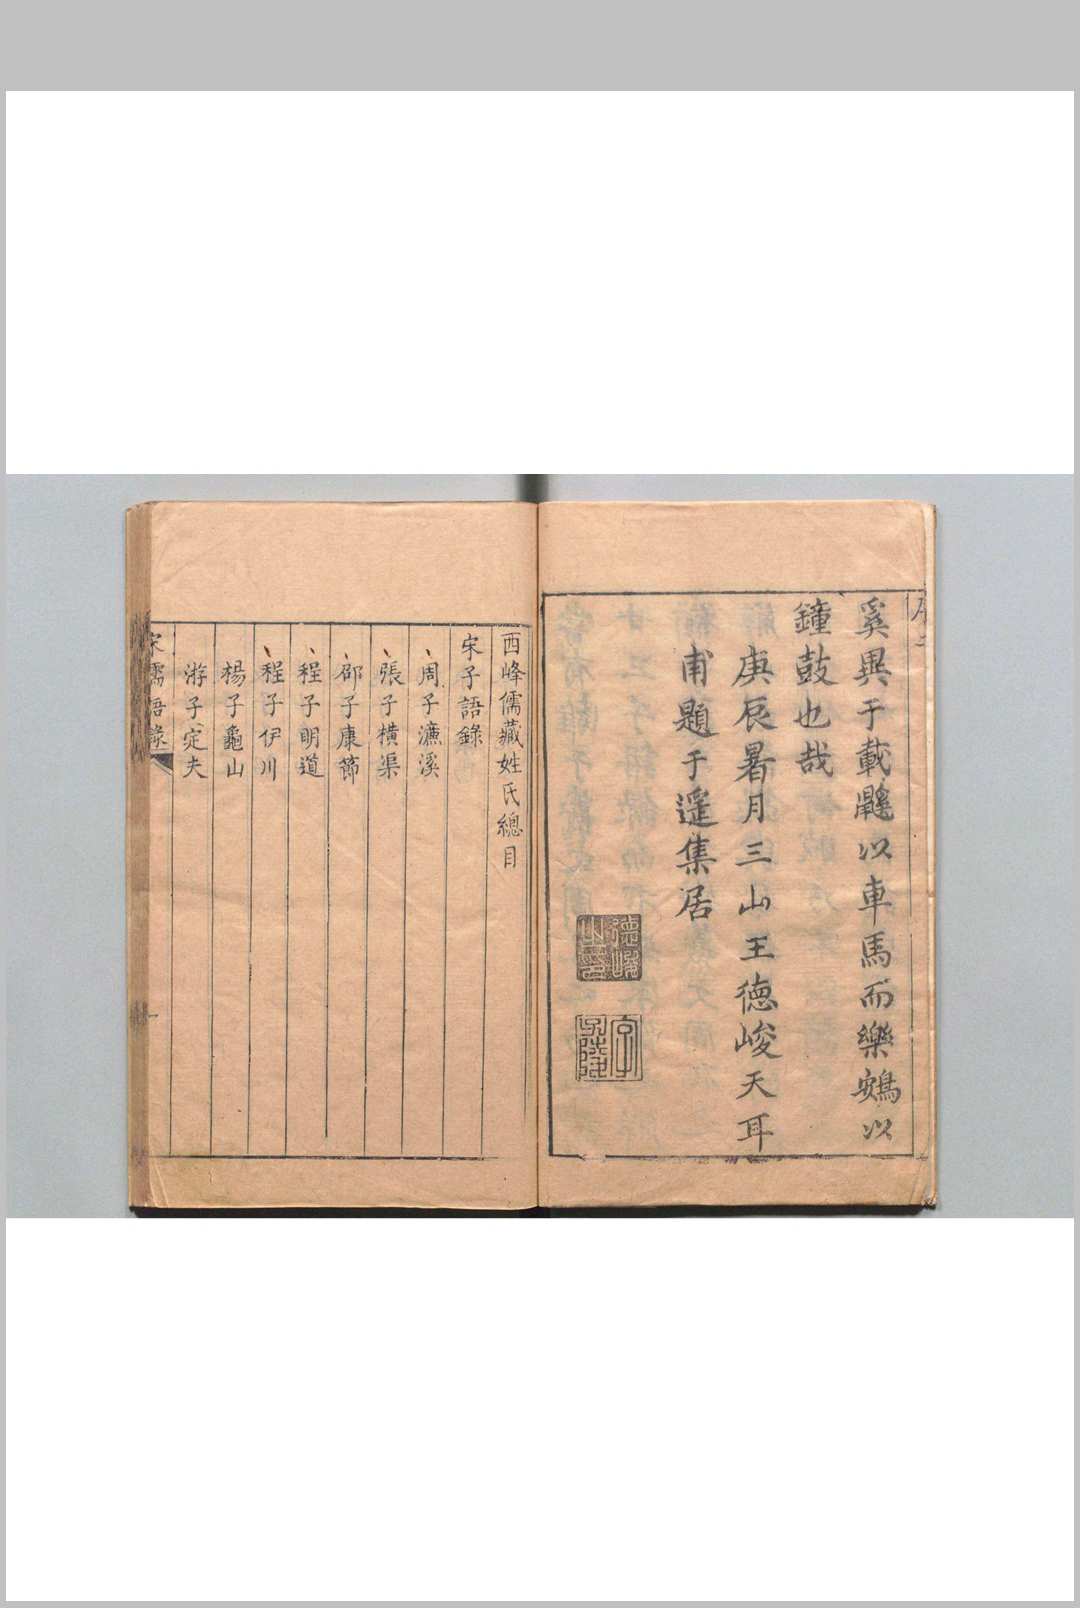 奚異于載鼷以車馬而樂鴳以
鐘鼓也哉
庚辰暑月三山王德峻天耳
甫題于遥集居
德峻
之印
西峰儒藏姓氏總目
宋子語錄
周子濂溪
張子橫渠
邵子康節
程子明道
程子伊川
楊子龜山
游子定夫
宋儒語錄